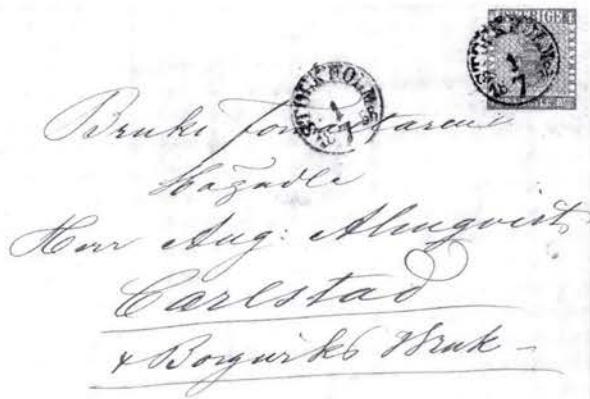 SVERIGE
STOCKHOLM
1
7
STOCKHOLM
1
7
Bruks Förvaltaren
Högädle
Herr Aug: Almqvist
Carlstad
& Borgviks Bruk –